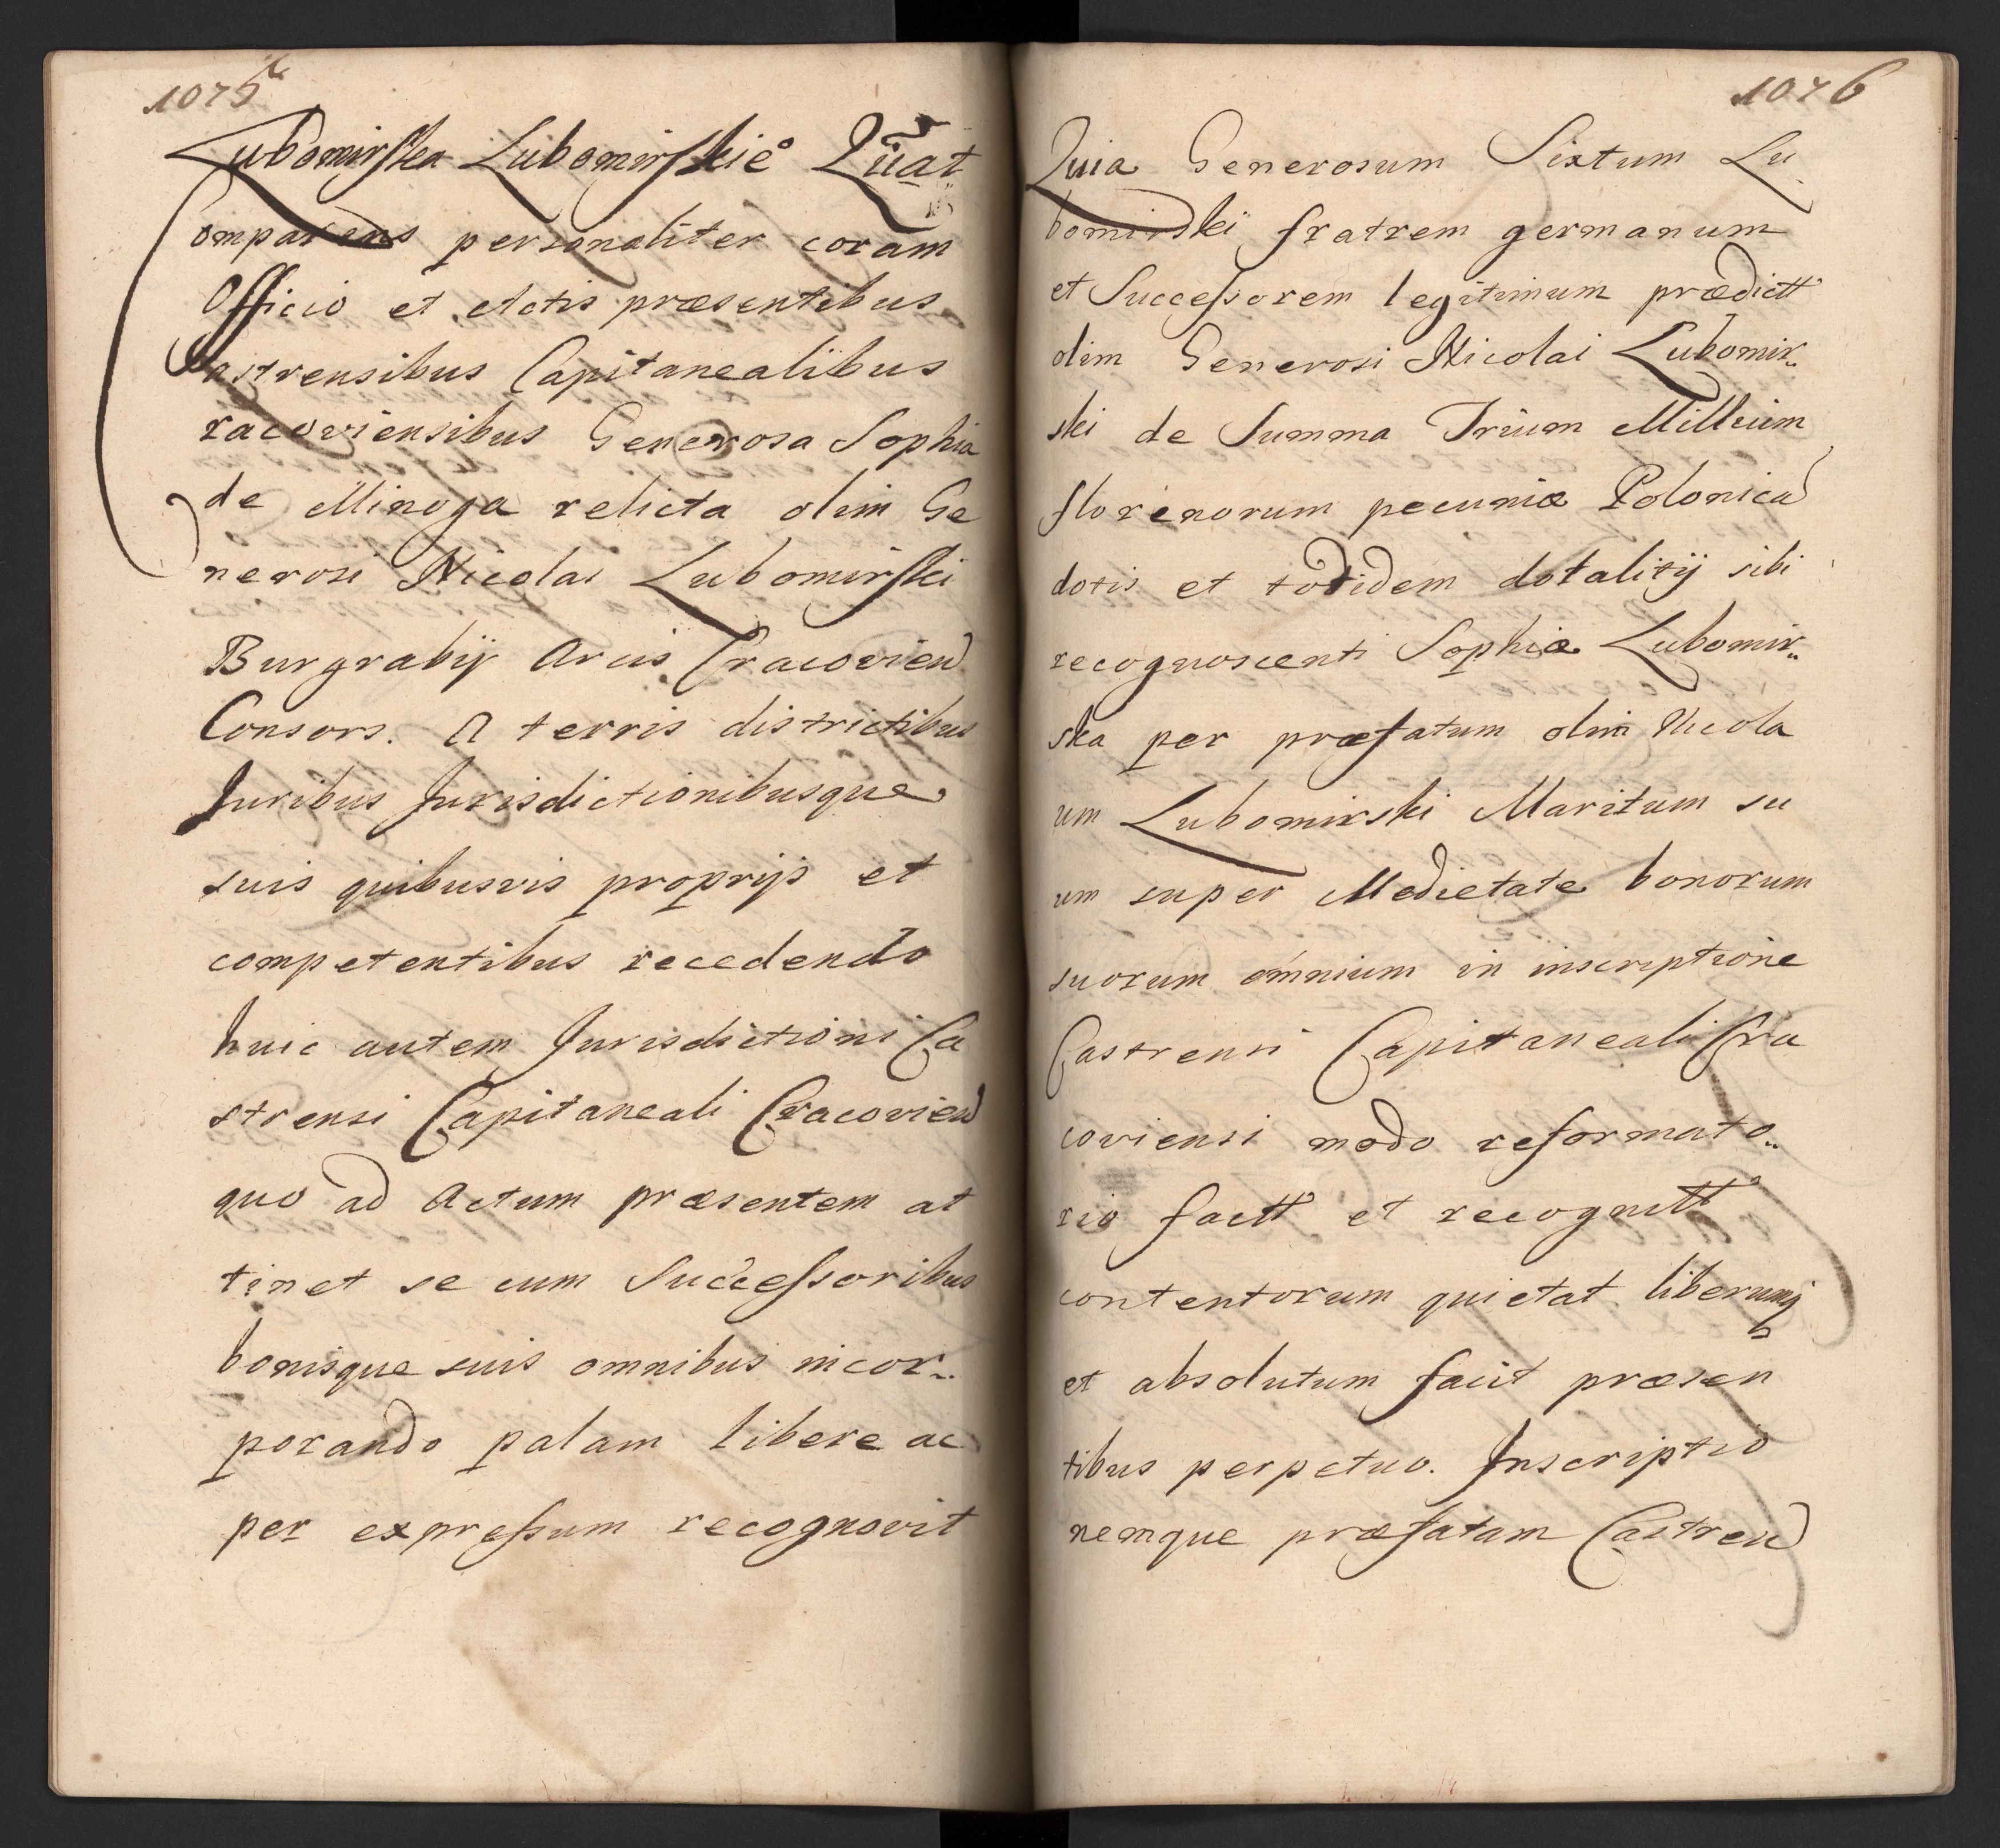 1075
Lubomirska Lubomirskie Quat
Comparens personaliter coram
Officio et Actis præsentibus
Castrensibus Capitanealibus
racoviensibus Generosa Sophia
de Minoga relicta olim Ge
nerosi Nicolai Lubomirski
Burgrabij Arcis Cracovien
Consors. A terris districtibus
Juribus Jurisdictionibusque
suis quibusvis proprijs et
competentibus recedendo
huic autem Jurisdictioni Ca
strensi Capitaneali Cracovien
quo ad Actum præsentem at
tinet se cum Successoribus
bonisque suis omnibus incor„
porando palam libere ac
per expressum recognovit
1076
Quia Generosum Sixtum Lu
bomirski fratrem germanum
et Successorem legitimum prædictt
olim Generosi Nicolai Lubomir„
ski de Summa Trium Millium
florenorum pecuniæ Polonical
dotis et totidem dotalitij sibi
recognoscenti Sophiæ Lubomir„
ska per præfatum olim Nicola
um Lubomirski Maritum su
um super Medietate bonorum
suorum omnium in inscriptione
Castrensi Capitaneali Cra
coviensi modo reformato„
rio factt et recognitt
contentorum quietat liberumq
et absolutum facit præsen
tibus perpetuo. Inscriptio
nemque præfatam Castren